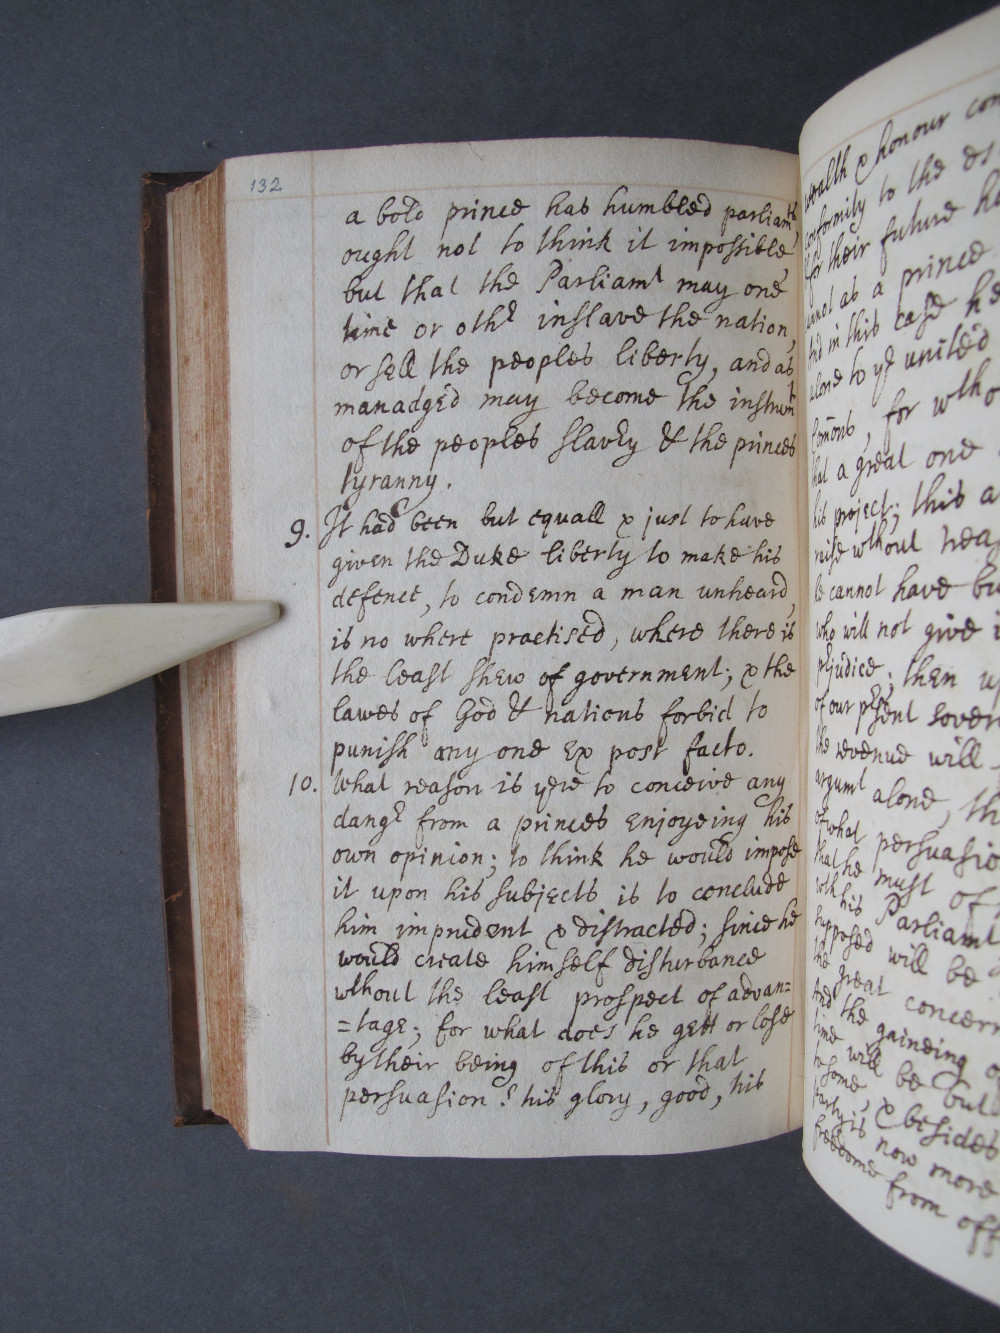 132
a bold prince has humbled parliamts,
ought not to think it impossible,
but that the Parliamt may one
time or othr inslave the nation,
or sell the peoples liberty, and as
managed may become the instrumt
of the peoples slavry & the princes
tyranny.
9. It had been but equall & just to have
given the Duke liberty to make his
defence, to condemn a man unheard,
is no where practised, where there is
the least shew of government; & the
lawes of God & nations forbid to
punish any one ex post facto.
10. What reason is yere to conceive any
dangr from a princes enjoyeing his
own opinion; to think he would impose
it upon his subjects is to conclude
him imprudent & distracted; since he
would create himself disturbance
wthout the least prospect of advan=
=tage; for what does he gett or lose
by their being of this or that
persuasion? his glory, good, his
wealth & honour
conformity to the
for their future
cannot as a prince
And in this case he
alone to ye united
for wtho
that a great one
his project; this a
raise wthout
he cannot have bu
who will not give
prjudice; then
of our prsent sover
the revenue will
argumt alone, th
of what persuasio
that he must of
wth his Parliamt
supposed will be
the great concern
And the gaineing
time will be but
to some, & besides
party is now more
freedome from off